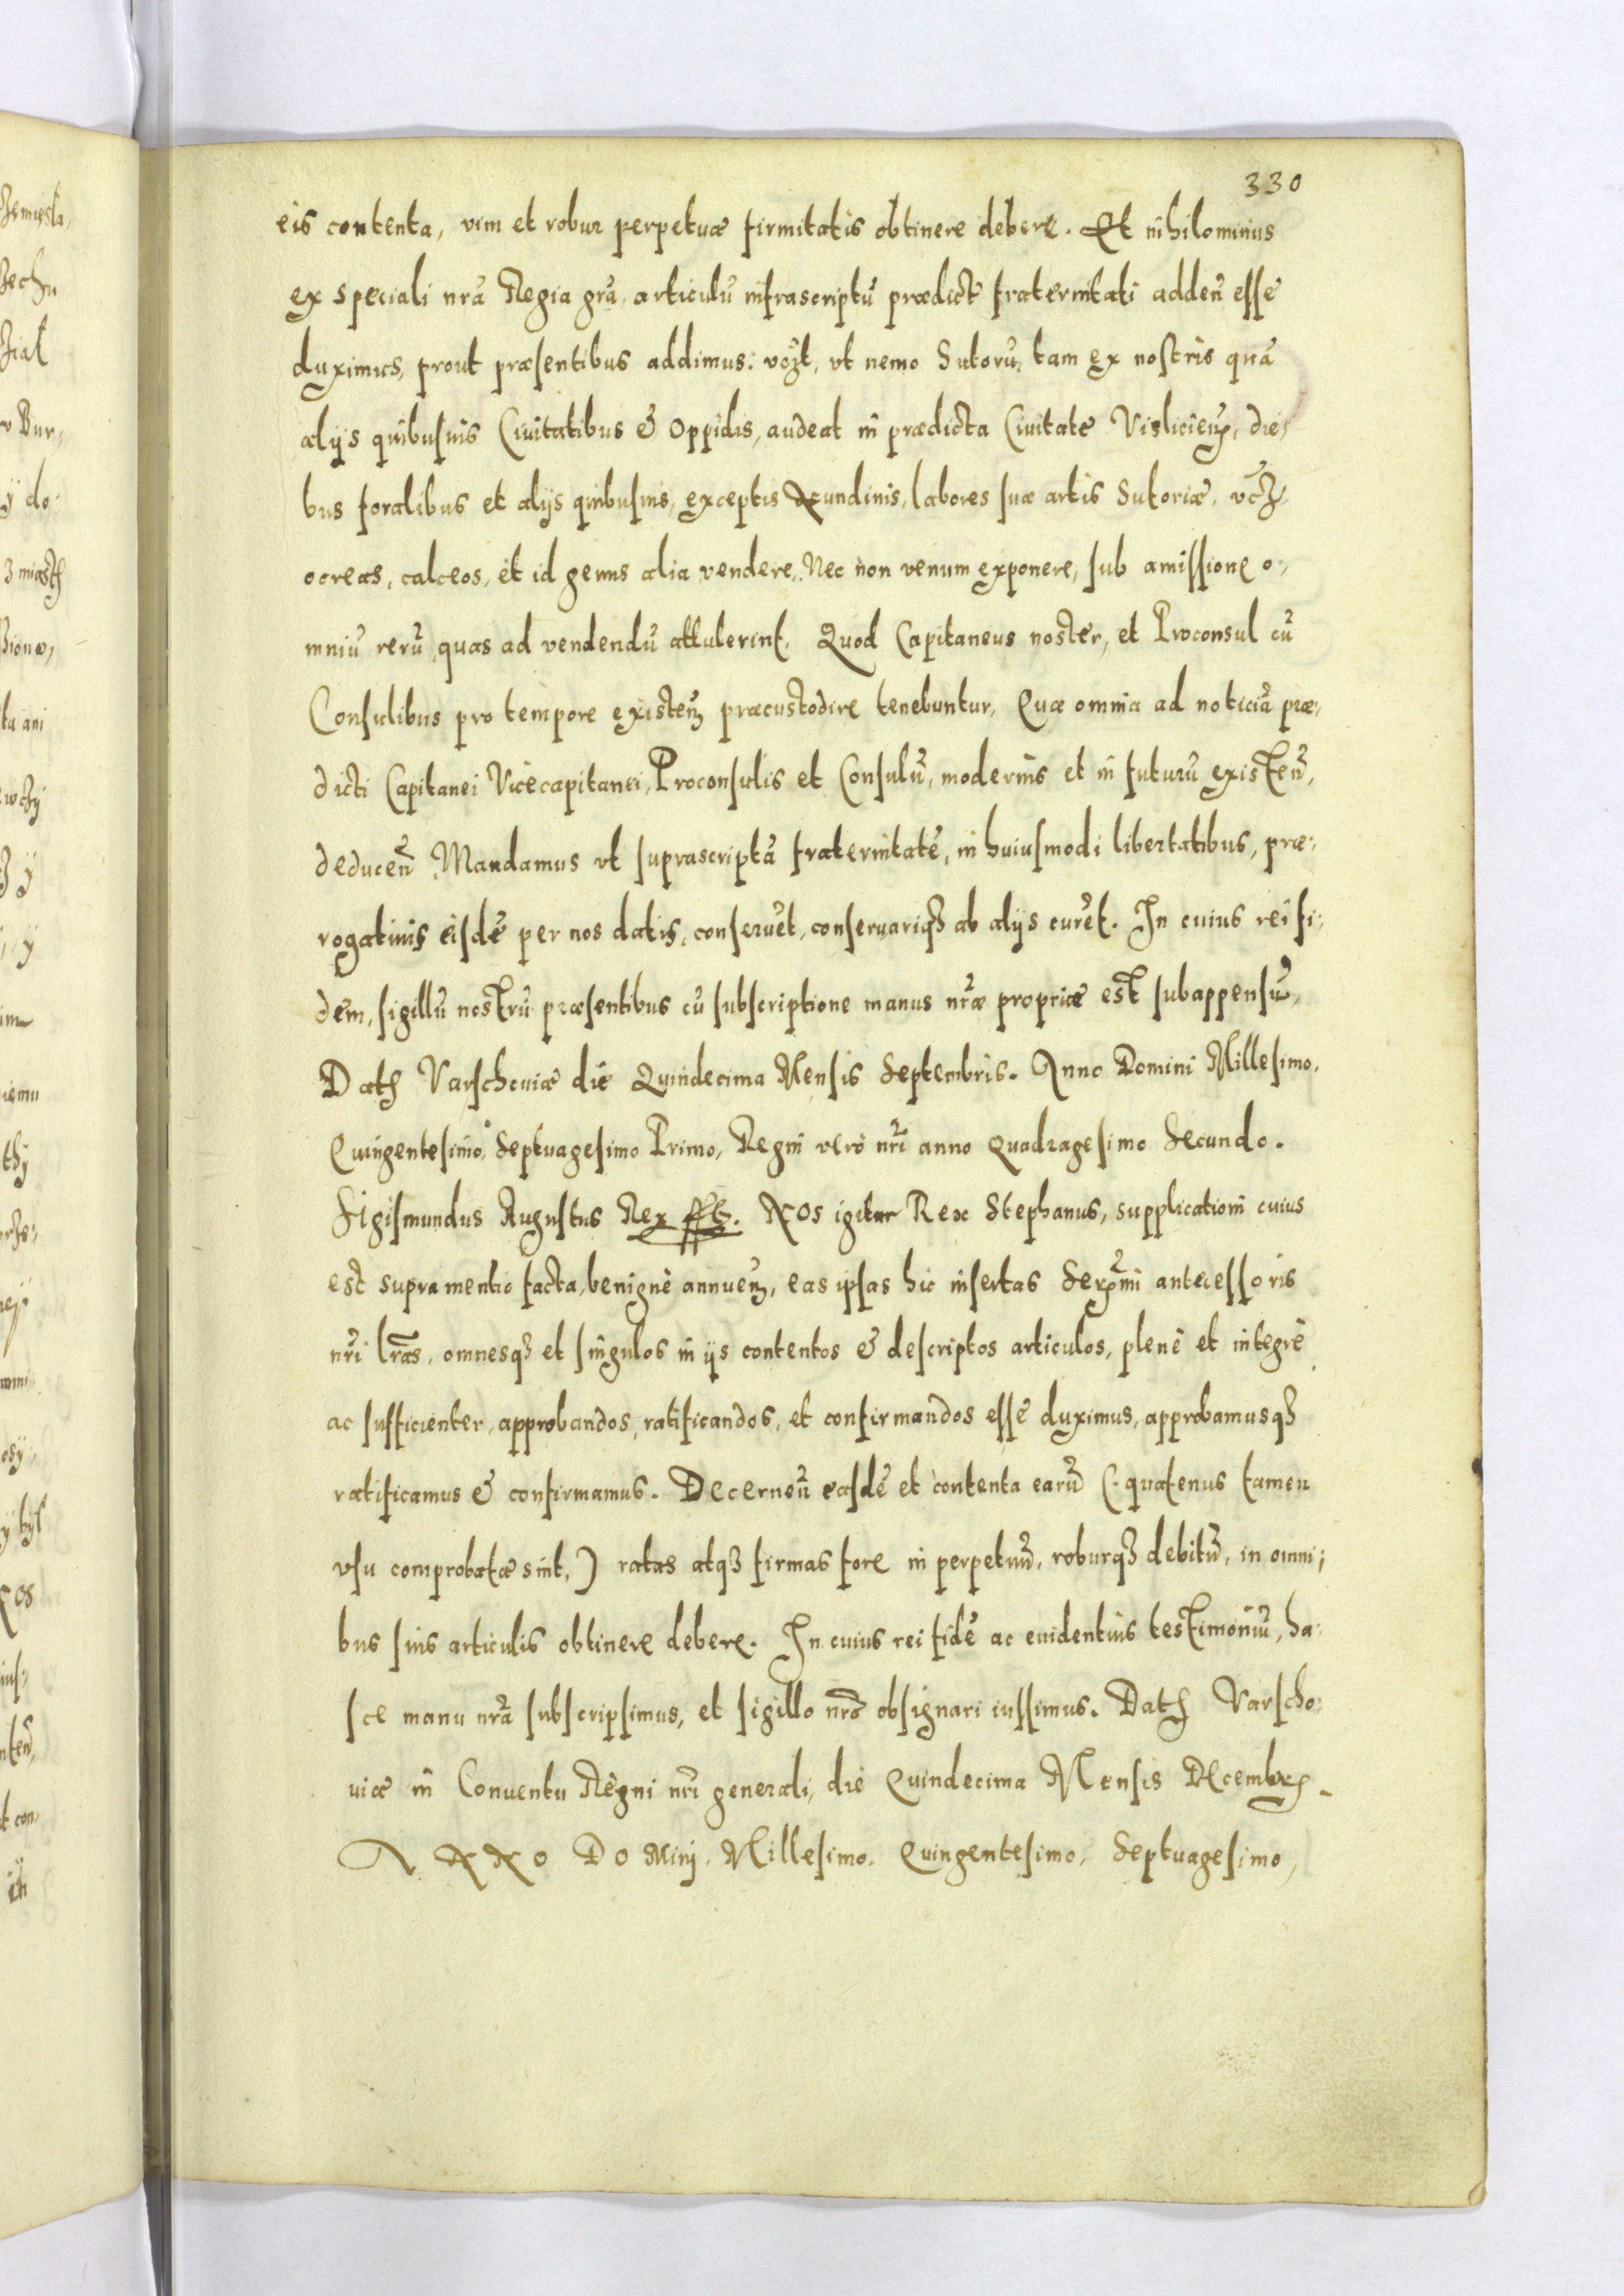 330
eis contenta, vim et robur perpetuæ firmitatis obtinere debere. Et nihilominus
ex speciali nrã Regia grã, articulũ infrascriptũ prædict fraternitati adden̄ esse
duximus, prout præsentibus addimus: vczt, vt nemo Sutorũ, tam ex nostris quã
alijs quibusuis Ciuitatibus & Oppidis, audeat in prædicta Ciuitate Vislicien, die,
bus foralibus et alijs quibusuis, exceptis Nundinis, labores suæ artis Sutoriæ, vcz
ocreas, calceos, et id genus alia vendere, Nec non venum exponere, sub amissione o,
mniũ rerũ, quas ad vendendũ attulerint. Quod Capitaneus noster, et Proconsul cũ
Consulibus pro tempore existen̄ præcustodire tenebuntur, Quæ omnia ad noticiã præ,
dicti Capitanei Vicecapitanei, Proconsulis et Consulũ, modernis et in futurũ existen̄,
deducen̄ Mandamus vt suprascriptã fraternitatẽ, in huiusmodi libertatibus, præ,
rogatiuis eisdẽ per nos datis, conseruẽt, conseruariqȝ ab alijs curẽt. In cuius rei fi,
dem, sigillũ nostrũ præsentibus cũ subscriptione manus nrãe propriæ est subappensũ,
Datȝ Varschouiæ die Quindecima Mensis Septembris. Anno Domini Millesimo,
Quingentesimo, Septuagesimo Primo, Regni verò nrĩ anno Quadragesimo Secundo.
Sigismundus Augustus Rex sst. Nos igitur Rex Stephanus, supplicationi cuius
est supra mentio facta, benignè annuen̄, eas ipsas hic insertas Serẽmi antecessoris
nrĩ lrãs, omnesqȝ et singulos in ijs contentos & descriptos articulos, plenè et integrè
ac sufficienter, approbandos, ratificandos, et confirmandos esse duximus, approbamusqȝ
ratificamus & confirmamus. Decernen̄ easdẽ et contenta earũ (quatenus tamen
vsu comprobatæ sint,) ratas atqȝ firmas fore in perpetuũ, roburqȝ debitũ, in omni,
bus suis articulis obtinere debere. In cuius rei fidẽ ac euidentius testimoniũ, ha,
sce manu nrã subscripsimus, et sigillo nrõ obsignari iussimus. Datȝ Varscho,
uiæ in Conuentu Regni nrĩ generali, die Quindecima Mensis Decembrȝ.
ANNO DOMinj. Millesimo. Quingentesimo, Septuagesimo,